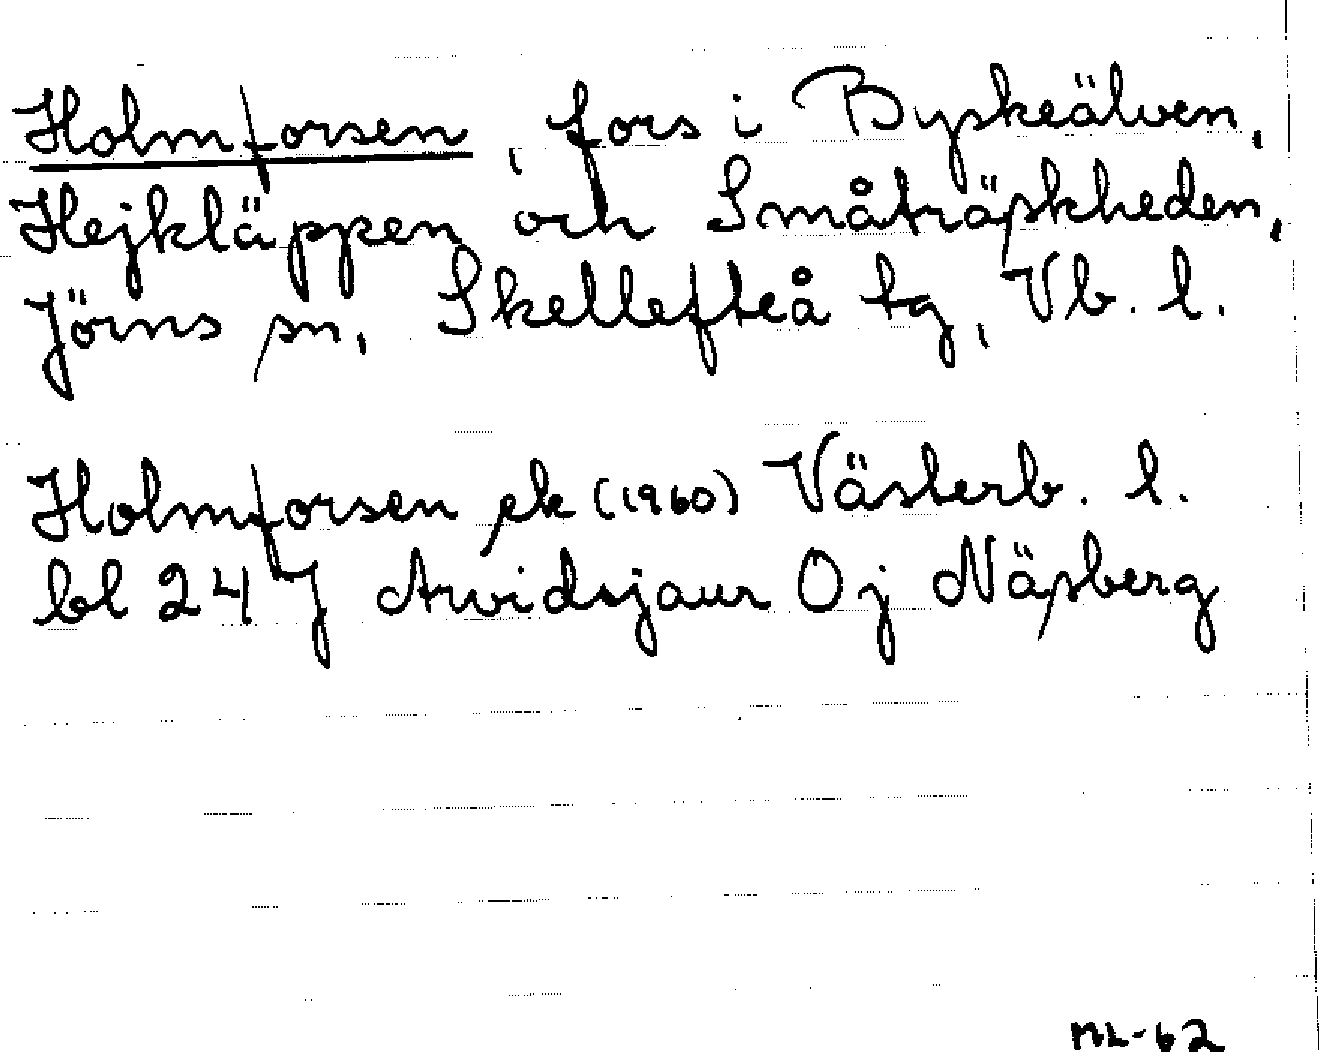 Holmforsen, fors i Byskeälven,
Hejkläppen och Småträskheden,
Jörns sn, Skellefteå tg, Vb. l.
Holmforsen ek (1960) Västerb. l.
bl 24 J Arvidsjaur Oj Näsberg
ML-62